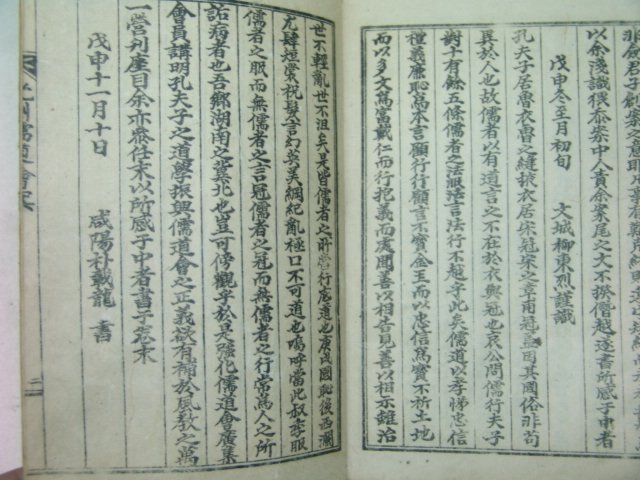 以余淺識機泰案中人責余案尾之文不揆僭越逐書所感于中者
戊申冬至月初旬 文城柳東烈謹識
孔夫子居魯衣魯之縫掖衣居宋冠宋之章甫冠盖因其國俗非苟
異於人也故儒者以有道言之不在於衣與冠也哀公問儒行夫子
對十有餘五條儒者之法服法言法行不越乎此矣儒道以孝悌忠信
種義廉恥爲本言顧行行顧言不寶金玉而以忠信爲寶不祈土地
而以多文爲富戴仁而行抱義而處聞善以相告見善以相示雖治
世不輕亂世不沮矣是皆儒者之所當行底道也庚戌國恥後西瀾
尤肆短裳祝髮言幻英美綱紀亂極口不可道也嗚呼當此叔季服
儒者之服而無儒者之言冠儒者之冠而無儒者之行常爲人之所
詬病者也吾鄕湖南之冀北也豈可傍觀乎於是强化儒道會廣集
會員講明孔夫子之道學振興儒道會之正義欲有補於風敎之萬
一營刊座目余亦忝任末以所感于中者書于卷末
戊申十一月十日 咸陽朴載龍 書
二